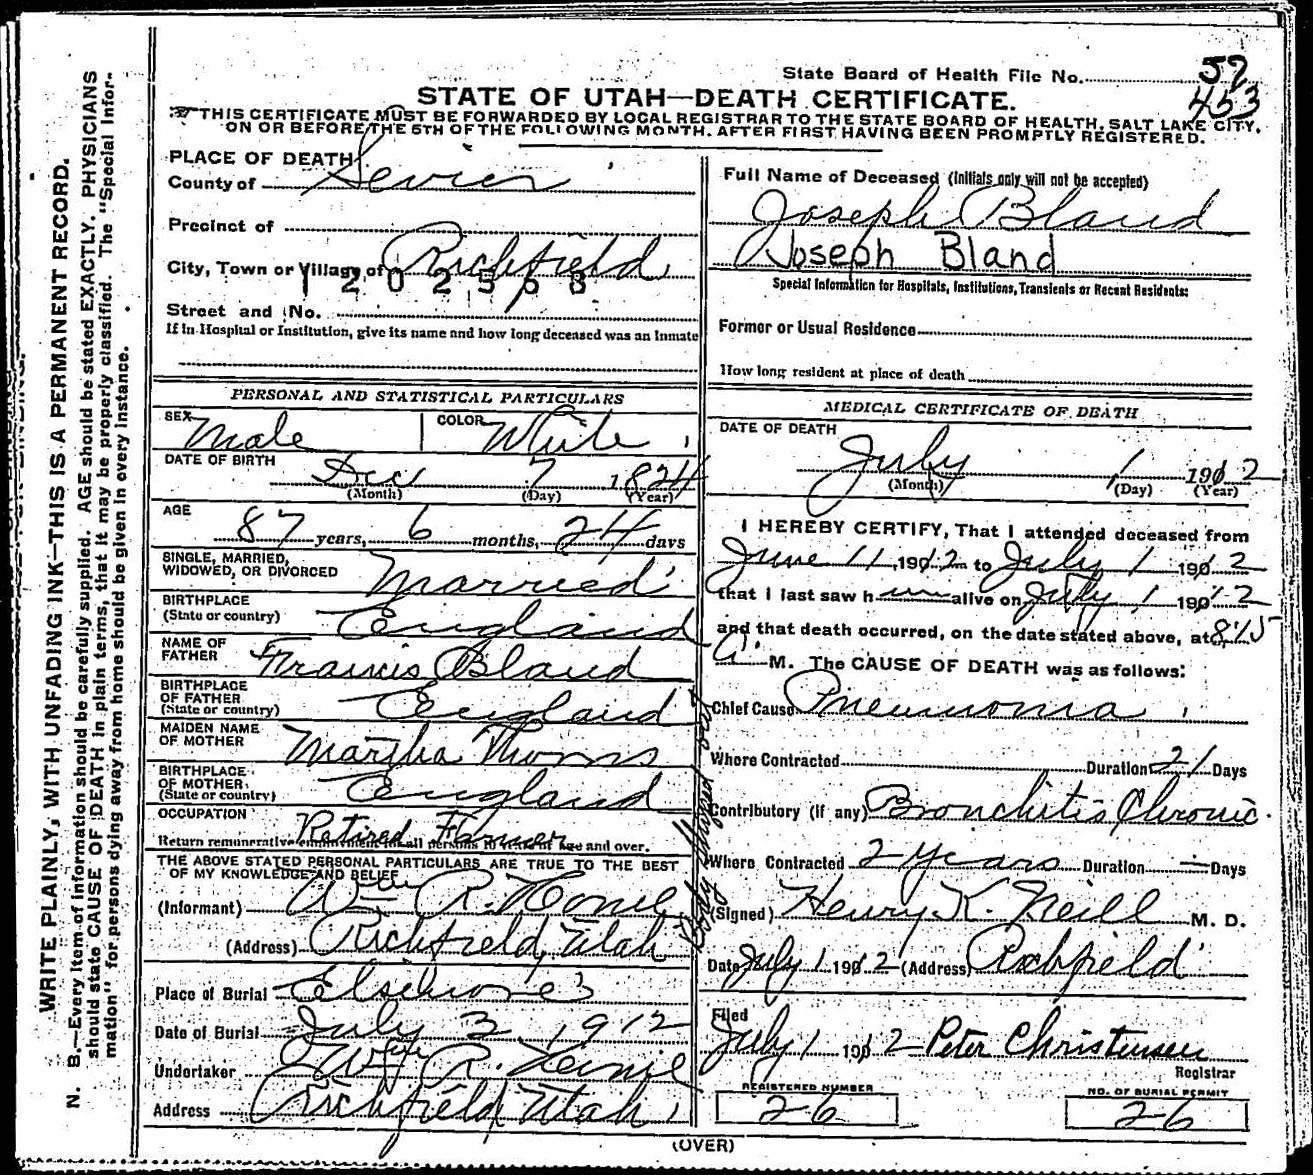 State Board of Health File No. 59
453
STATE OF UTAH—DEATH CERTIFICATE.
THIS CERTIFICATE MUST BE FORWARDED BY LOCAL REGISTRAR TO THE STATE BOARD OF HEALTH, SALT LAKE CITY,
ON OR BEFORE THE 5TH OF THE FOLLOWING MONTH. AFTER FIRST HAVING BEEN PROMPTLY REGISTERED.
PLACE OF DEATH
County of Sevier
Precinct of
City, Town or Village of Richfield
1202568
Street and No.
If in Hospital or Institution, give its name and how long deceased was an inmate
PERSONAL AND STATISTICAL PARTICULARS
SEX Male COLOR White
DATE OF BIRTH Dec 7 1824
(Month) (Day) (Year)
AGE 87 years, 6 months, 24 days
SINGLE, MARRIED,
WIDOWED, OR DIVORCED Married
BIRTHPLACE
(State or country) England
NAME OF
FATHER Francis Bland
BIRTHPLACE
OF FATHER
(State or country) England
MAIDEN NAME
OF MOTHER Martha Thoms
BIRTHPLACE
OF MOTHER
(State or country) England
OCCUPATION Retired Farmer
Return remunerative employment for all persons and over.
THE ABOVE STATED PERSONAL PARTICULARS ARE TRUE TO THE BEST
OF MY KNOWLEDGE AND BELIEF
(Informant) Wm R.
(Address) Richfield, Utah
Place of Burial
Date of Burial July 3 1912
Undertaker Wm R.
Address Richfield Utah
Full Name of Deceased (Initials only will not be accepted)
Joseph Bland
Joseph Bland
Special Information for Hospitals, Institutions, Transients or Recent Residents:
Former or Usual Residence
How long resident at place of death
MEDICAL CERTIFICATE OF DEATH
DATE OF DEATH
July 1 1912
(Month) (Day) (Year)
I HEREBY CERTIFY, That I attended deceased from
June 11, 1912 to July 1 1912
that I last saw him alive on July 1 1912
and that death occurred, on the date stated above, at 8/15
a. M. The CAUSE OF DEATH was as follows:
Chief Cause Pneumonia
Where Contracted Duration 21 Days
Contributory (if any) Bronchitis Chronic.
Where Contracted 2 years Duration — Days
(Signed) Henry K. Neill M. D.
Date July 1 1912 (Address) Richfield
Filed
July 1 1912 Peter Christensen
Registrar
REGISTERED NUMBER
26
NO. OF BURIAL PERMIT
26
(OVER)
WRITE PLAINLY, WITH UNFADING INK—THIS IS A PERMANENT RECORD.
N. B.—Every item of information should be carefully supplied. AGE should be stated EXACTLY. PHYSICIANS
should state CAUSE OF DEATH in plain terms, that it may be properly classified. The "Special Infor-
mation" for persons dying away from home should be given in every instance.